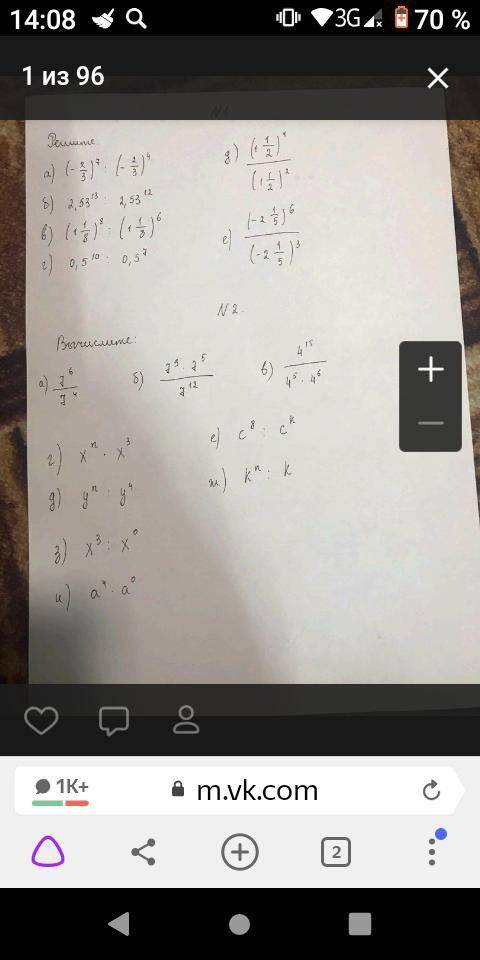 14:08 3G 70 %
1 из 96
N1
Решите
а) (-2/3)^7 : (-2/3)^4
б) 2,53^13 : 2,53^12
в) (1 1/8)^8 : (1 1/3)^6
г) 0,5^10 : 0,5^7
д) (1 1/2)^4 / (1 1/2)^2
е) (-2 1/5)^6 / (-2 1/5)^3
N2.
Вычислите:
а) 7^6 / 7^4
б) 7^9 · 7^5 / 7^12
в) 4^15 / 4^5 · 4^6
г) x^n · x^3
д) y^n : y^4
е) c^8 : c^k
ж) k^n : k
з) x^3 : x^0
и) a^4 · a^0
1K+ m.vk.com
2